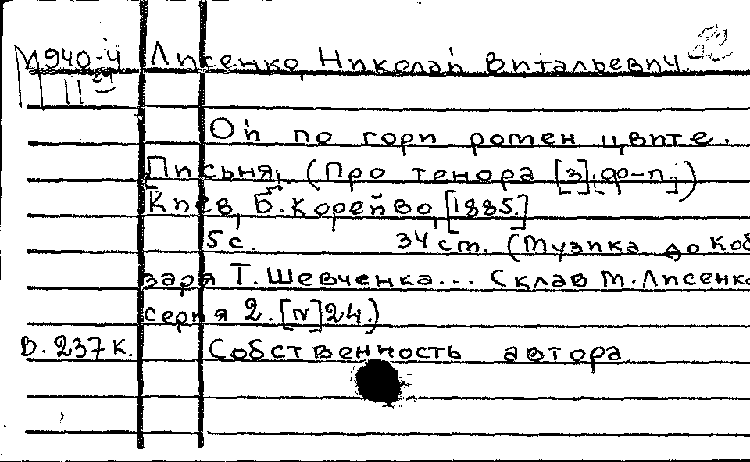 М940-4 Лисенко, Николай Витальевич
11
Ой по гори ромен цвите.
Письня, (Про тенора [з] ф-п.)
Киев, Б. Корейво, [1885.]
5 с. 34 ст. (Музика до Коб
заря Т. Шевченка... Склав М. Лисенко
серия 2. [N] 24.)
В. 237 к. Собственность автора